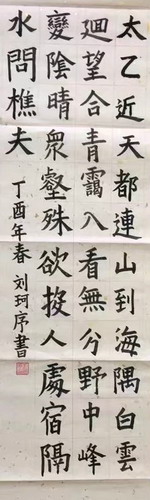 太乙近天都連山到海隅白雲
迴望合青靄入看無分野中峰
變陰晴衆壑殊欲投人處宿隔
水問樵夫
丁酉年春刘珂序書